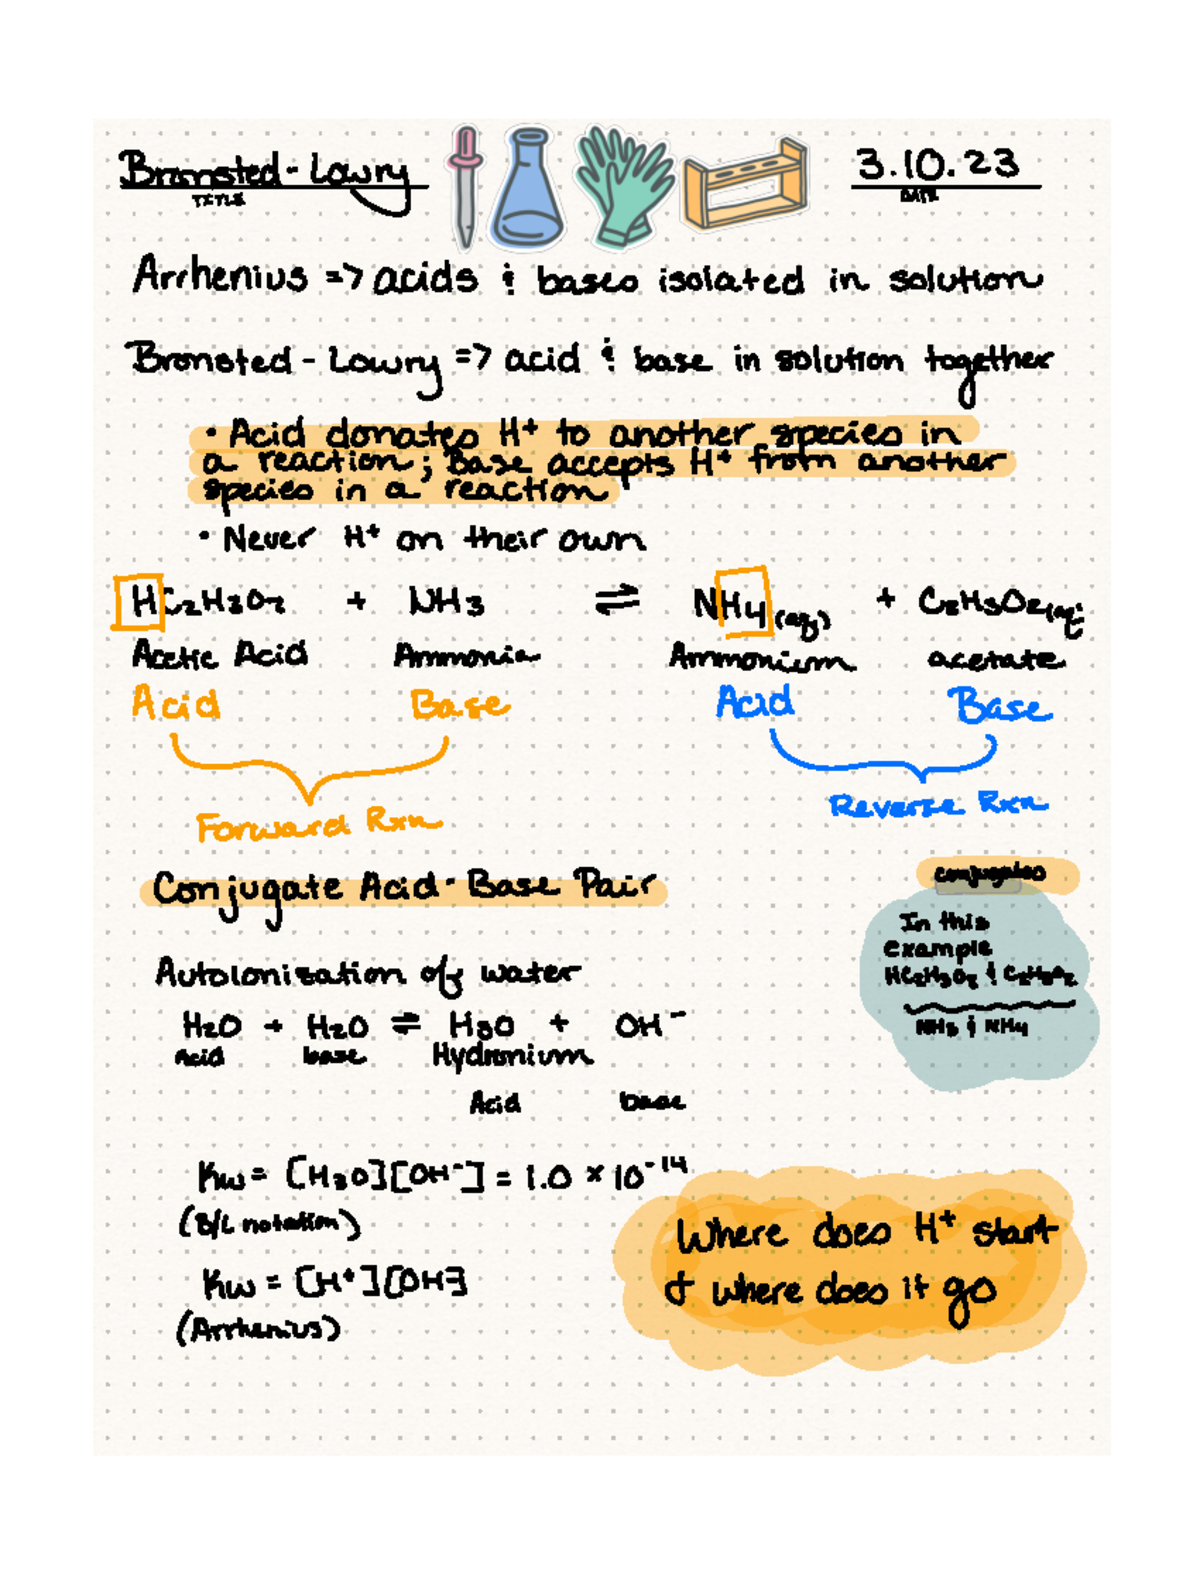 Bronsted-Lowry
TITLE
3.10.23
DATE
Arrhenius => acids & bases isolated in solution
Bronsted-Lowry => acid & base in solution together
• Acid donates H+ to another species in
a reaction; Base accepts H+ from another
species in a reaction
• Never H+ on their own
HC2H3O2 + NH3 ⇌ NH4(aq) + C2H3O2(aq)
Acetic Acid Ammonia Ammonium acetate
Acid Base Acid Base
Forward Rxn Reverse Rxn
Conjugate Acid-Base Pair
conjugates
In this
example
HC2H3O2 & C2H3O2
NH3 & NH4
AutoIonization of water
H2O + H2O ⇌ H3O + OH⁻
Acid base Hydronium
Acid base
Kw = [H3O][OH⁻] = 1.0 × 10⁻¹⁴
(B/L notation)
Kw = [H+][OH]
(Arrhenius)
Where does H+ start
& where does it go